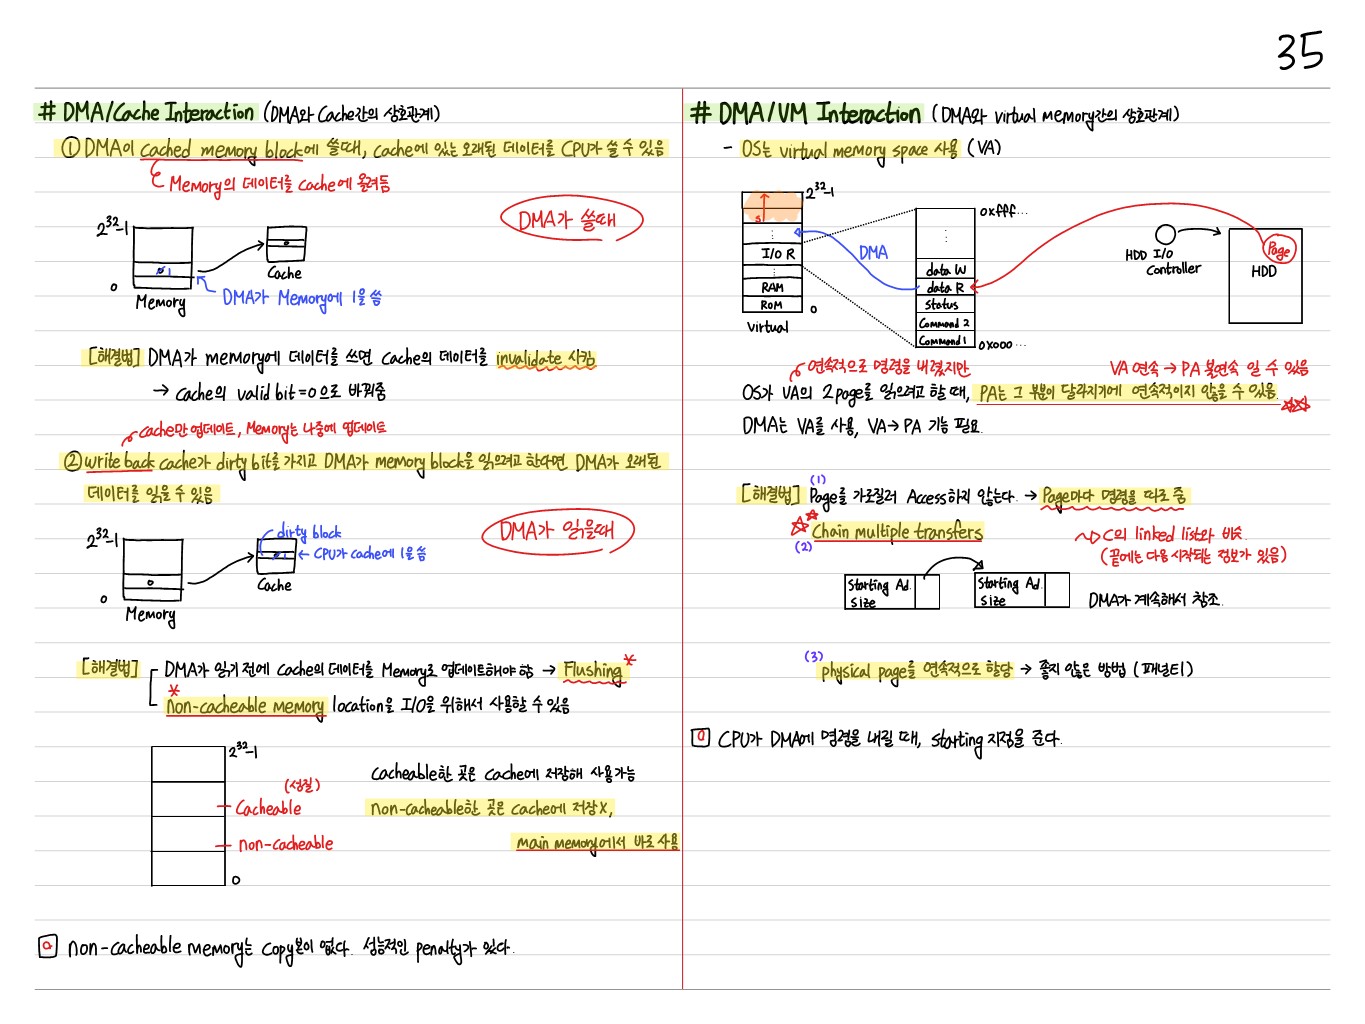 35
# DMA/Cache Interaction (DMA와 Cache간의 상호관계)
① DMA이 cached memory block에 쓸때, cache에 있는 오래된 데이터를 CPU가 쓸 수 있음
Memory의 데이터를 cache에 올려둠
DMA가 쓸때
2^32-1
0
Memory
Cache
DMA가 Memory에 1을 씀
[해결법] DMA가 memory에 데이터를 쓰면 Cache의 데이터를 invalidate 시킴
→ cache의 valid bit=0으로 바꿔줌
cache만 업데이트, Memory는 나중에 업데이트
② write back cache가 dirty bit를 가지고 DMA가 memory block을 읽으려고 한다면, DMA가 오래된
데이터를 읽을 수 있음
DMA가 읽을때
2^32-1
0
Memory
dirty block
← CPU가 cache에 1을 씀
Cache
[해결법] DMA가 읽기 전에 Cache의 데이터를 Memory로 업데이트해야 함 → Flushing *
* non-cacheable memory location을 I/O을 위해서 사용할 수 있음
2^32-1
(성질)
Cacheable
non-cacheable
0
Cacheable한 곳은 cache에 저장해 사용가능
non-cacheable한 곳은 cache에 저장X,
main memory에서 바로 사용
Q non-cacheable memory는 copy본이 없다. 성능적인 penalty가 있다.
# DMA/VM Interaction (DMA와 virtual memory간의 상호관계)
- OS는 virtual memory space 사용 (VA)
2^32-1
S
I/O R
RAM
ROM
0
Virtual
DMA
0xfff...
data W
data R
Status
Command 2
Command 1
0x000...
HDD I/O
Controller
Page
HDD
연속적으로 명령을 내렸지만
VA 연속 → PA 불연속 일 수 있음
OS가 VA의 2page를 읽으려고 할 때, PA는 그 부분이 달라지기에 연속적이지 않을 수 있음.
DMA는 VA를 사용, VA→PA 기능 필요.
(1)
[해결법] Page를 가로질러 Access하지 않는다. → Page마다 명령을 따로 줌
Chain multiple transfers
(2)
C의 linked list와 비슷
(끝에는 다음 시작되는 정보가 있음)
Starting Ad.
size
Starting Ad.
size
DMA가 계속해서 참조.
(3)
physical page를 연속적으로 할당 → 좋지 않은 방법 (패널티)
Q CPU가 DMA에 명령을 내릴 때, starting 지점을 준다.